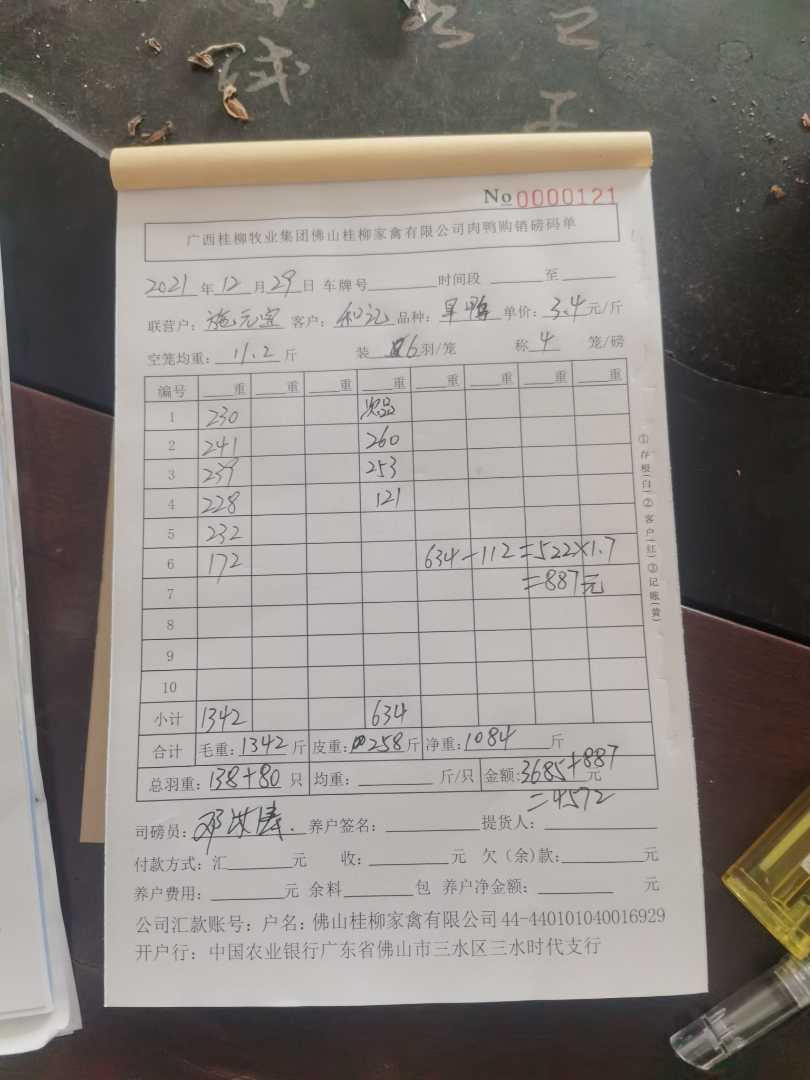 No 0000121
广西桂柳牧业集团佛山桂柳家禽有限公司肉鸭购销磅码单
2021年12月29日 车牌号 时间段 至
联营户：施元宝 客户：和记 品种：旱鸭 单价：3.4元/斤
空笼均重：11.2斤 装6羽/笼 称4笼/磅
编号 重 重 重 重 重 重 重 重
1 230 次品
2 241 260
3 239 253
4 228 121
5 232
6 172 634-112=522×1.7
7 =887元
8
9
10
小计 1342 634
合计 毛重：1342斤 皮重：258斤 净重：1084斤
总羽重：138+80只 均重： 斤/只 金额：3685+887元
=4572
司磅员：邓 养户签名： 提货人：
付款方式：汇 元 收： 元 欠（余）款： 元
养户费用： 元 余料 包 养户净金额： 元
公司汇款账号：户名：佛山桂柳家禽有限公司44-440101040016929
开户行：中国农业银行广东省佛山市三水区三水时代支行
①存根(白)②客户(红)③记账(黄)